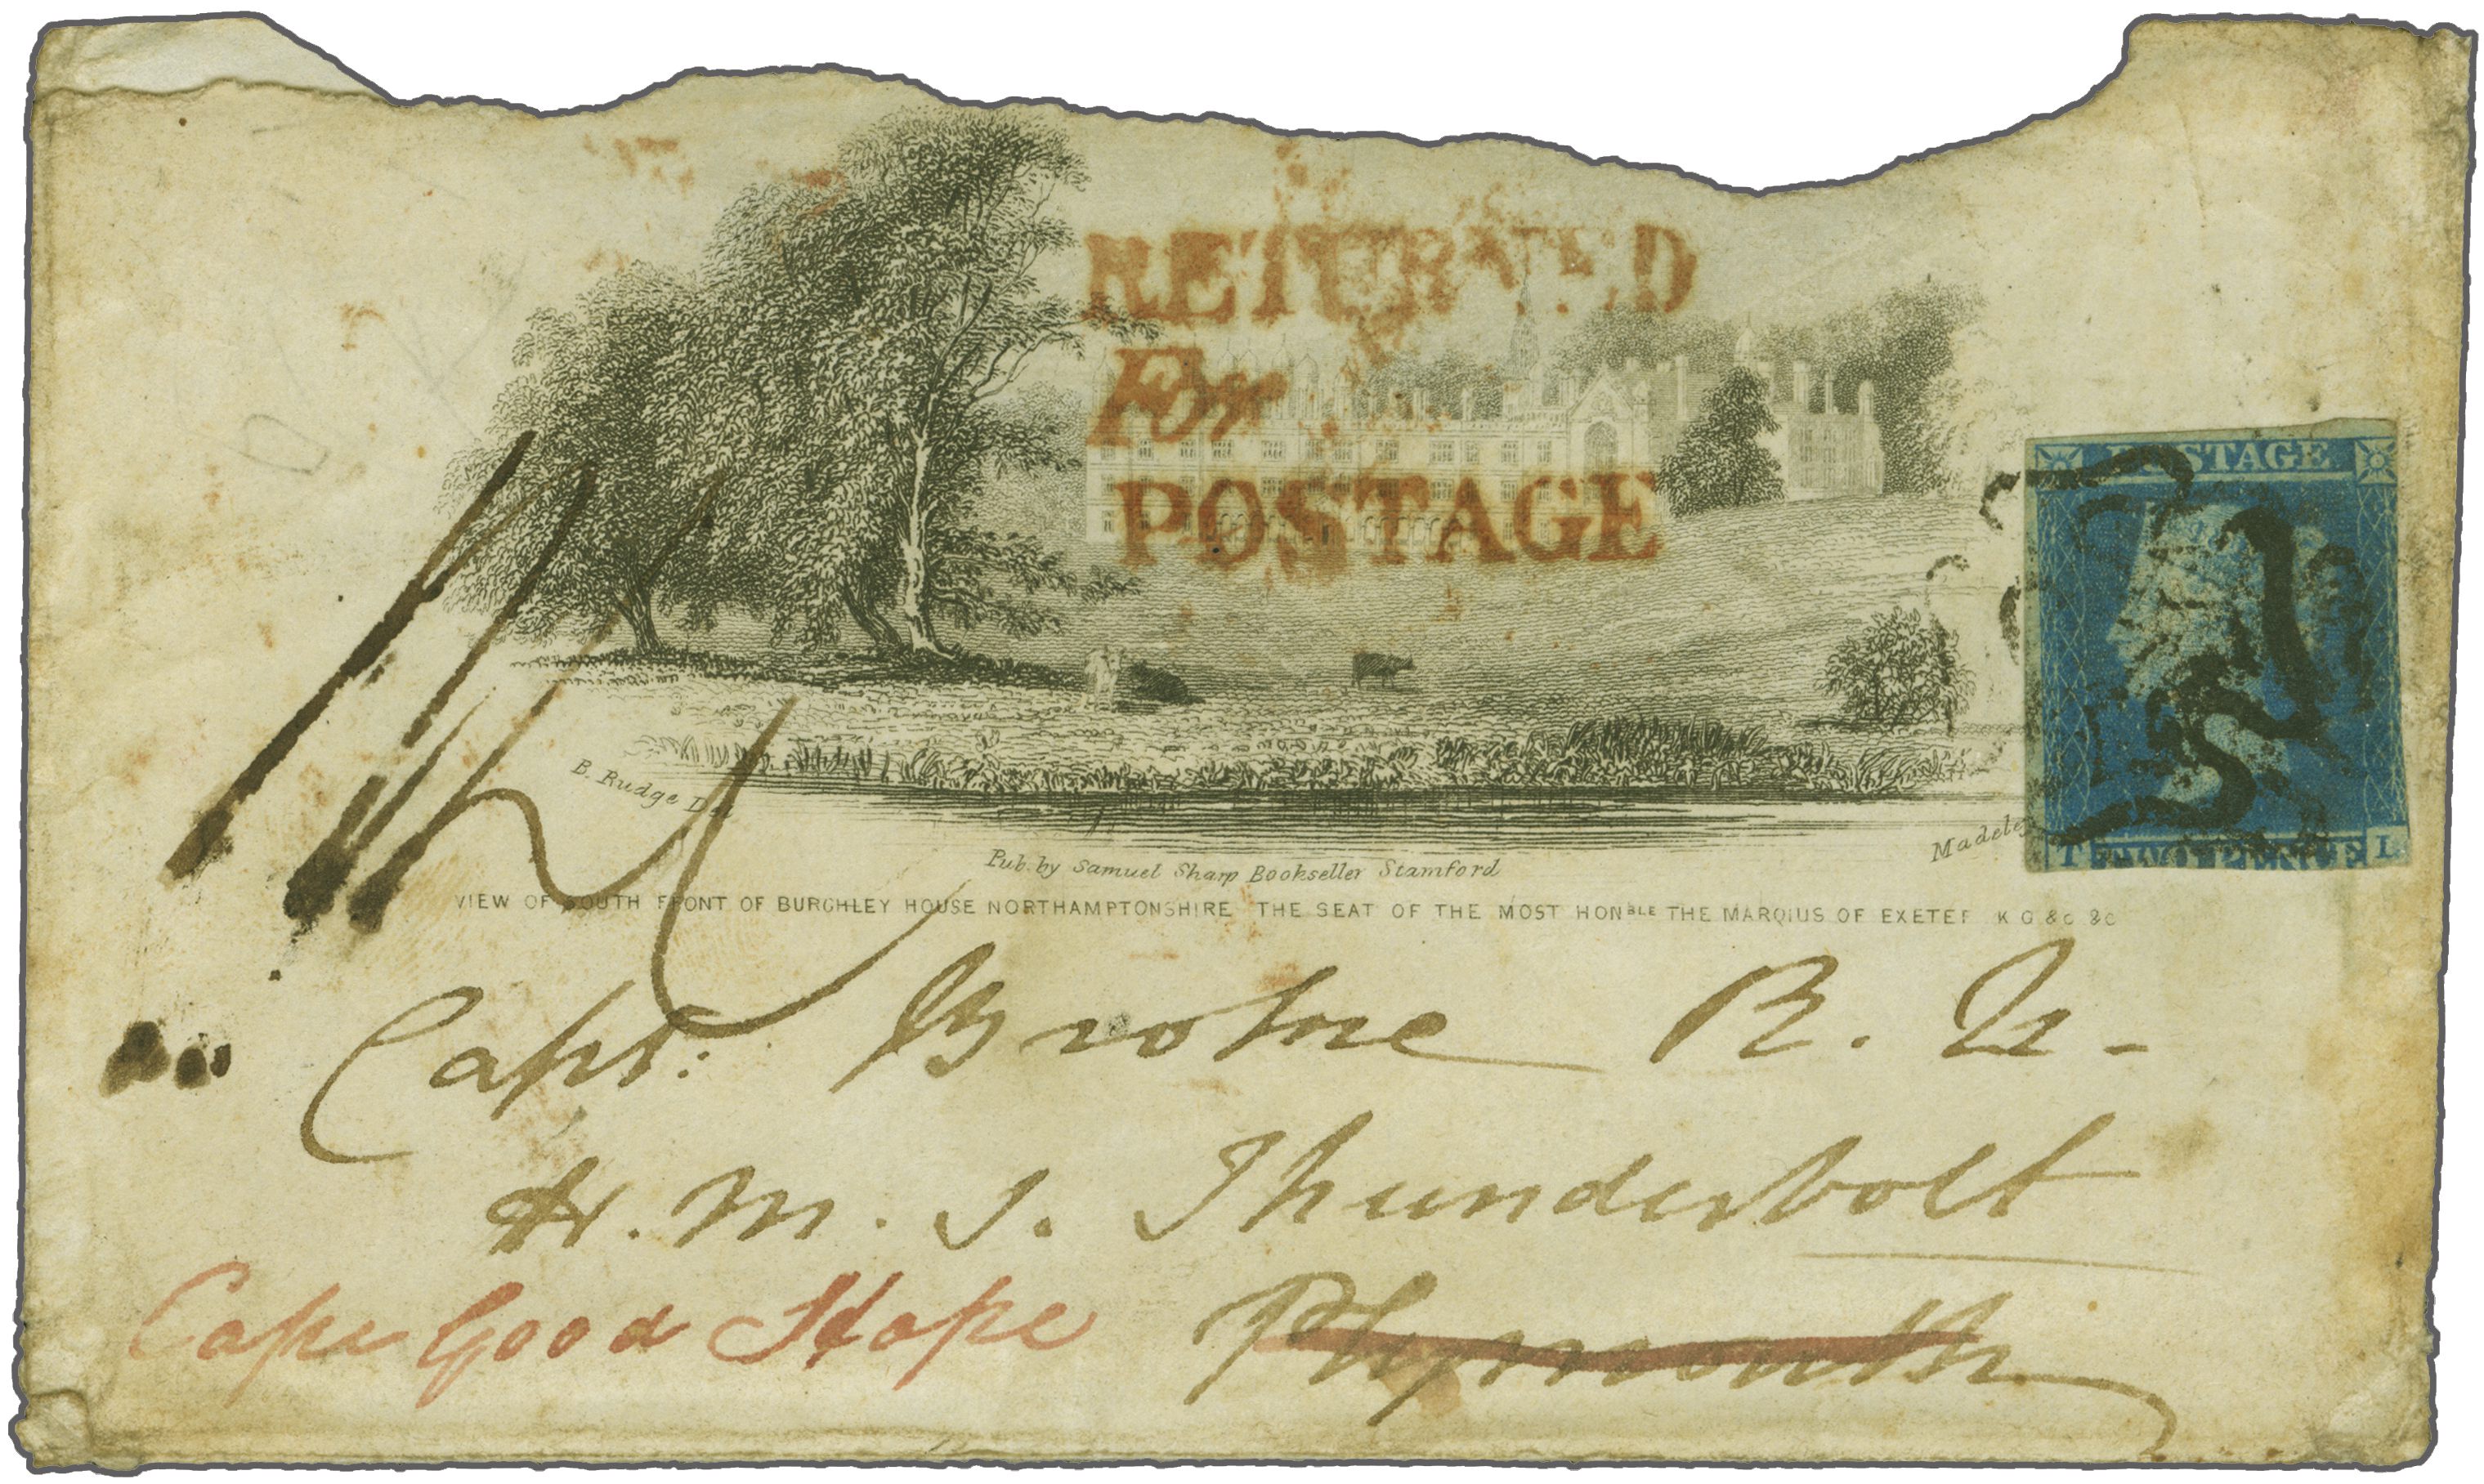 RETURNED
For
POSTAGE
POSTAGE
T TWO PENCE L
B. Rudge Del
Madele
Pub. by Samuel Sharp Bookseller Stamford
VIEW OF SOUTH FRONT OF BURGHLEY HOUSE NORTHAMPTONSHIRE THE SEAT OF THE MOST HONBLE THE MARQIUS OF EXETER K G &c &c
Capt. Brooke R. N.
H. M. S. Thunderbolt
Cape Good Hope Plymouth